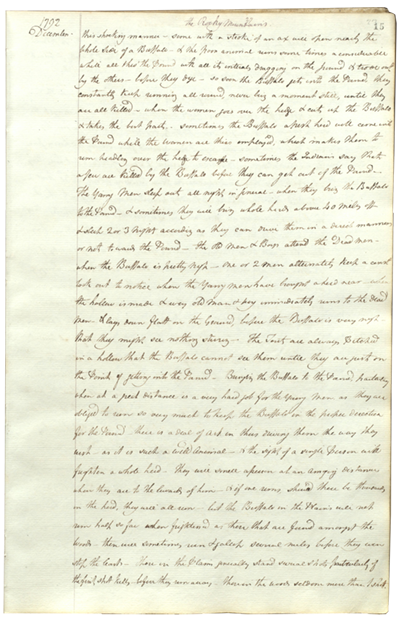 1792
December
the Rocky Mountains
15
this shocking manner - some with a stroke of an ax will open nearly the
whole side of a Buffalo - & the poor animal runs some times a considerable
while all thro' the Pound with all its entrails dragging on the ground & tore out
by the others - before they dye - so soon the Buffalo gets into the Pound, they
constantly keep running all round, never lay a moment still, until they
are all killed - when the women goes over the hedge & cuts up the Buffalo
& takes the best parts. - sometimes the Buffalo afresh herd will come into
the Pound while the women are thus employed, which makes them to
run headlong over the hedge to escape - sometimes the Indians say that
a few are killed by the Buffalo before they can get out of the Pound. -
The Young Men sleep out all night in general - when they bring the Buffalo
to the Pound - & sometimes they will bring whole herds above 40 miles off
& sleep 2 or 3 nights according as they can drive them in a direct manner
or not towards the Pound - the old men & Boys attend the Dead men -
when the Buffalo is pretty nigh - one or 2 men alternately keep a constant
look out to notice when the Young men have brought a herd near - when
the hollow is made & every old man & boy immediately runs to the dead
men & lays down flat on the Ground, before the Buffalo is very nigh
that they might see nothing stirring - The Tents are always pitched
in a hollow that the Buffalo cannot see them until they are just on
the brink of getting into the Pound - Bringing the Buffalo to the Pound, particularly
when at a great distance is a very hard job for the Young Men as they are
obliged to run so very much to keep the Buffalo in the proper direction
for the Pound - there is a deal of art in their driving them the way they
wish - as it is such a wild animal - & the sight of a single person will
frighten a whole herd. They will smell a person at an amazing distance
when they are to the leewards of him - & if one runs, should there be thousands
in the herd, they will all run - but the Buffalo in the Plains will not
run half so far when frightened as those that are found amongst the
woods - them will sometimes run & gallop several miles before they even
stop the herds - those in the Plains generally stand several shots (particularly if
the first shot kills) before they run away. - those in the woods seldom more than 1 shot.